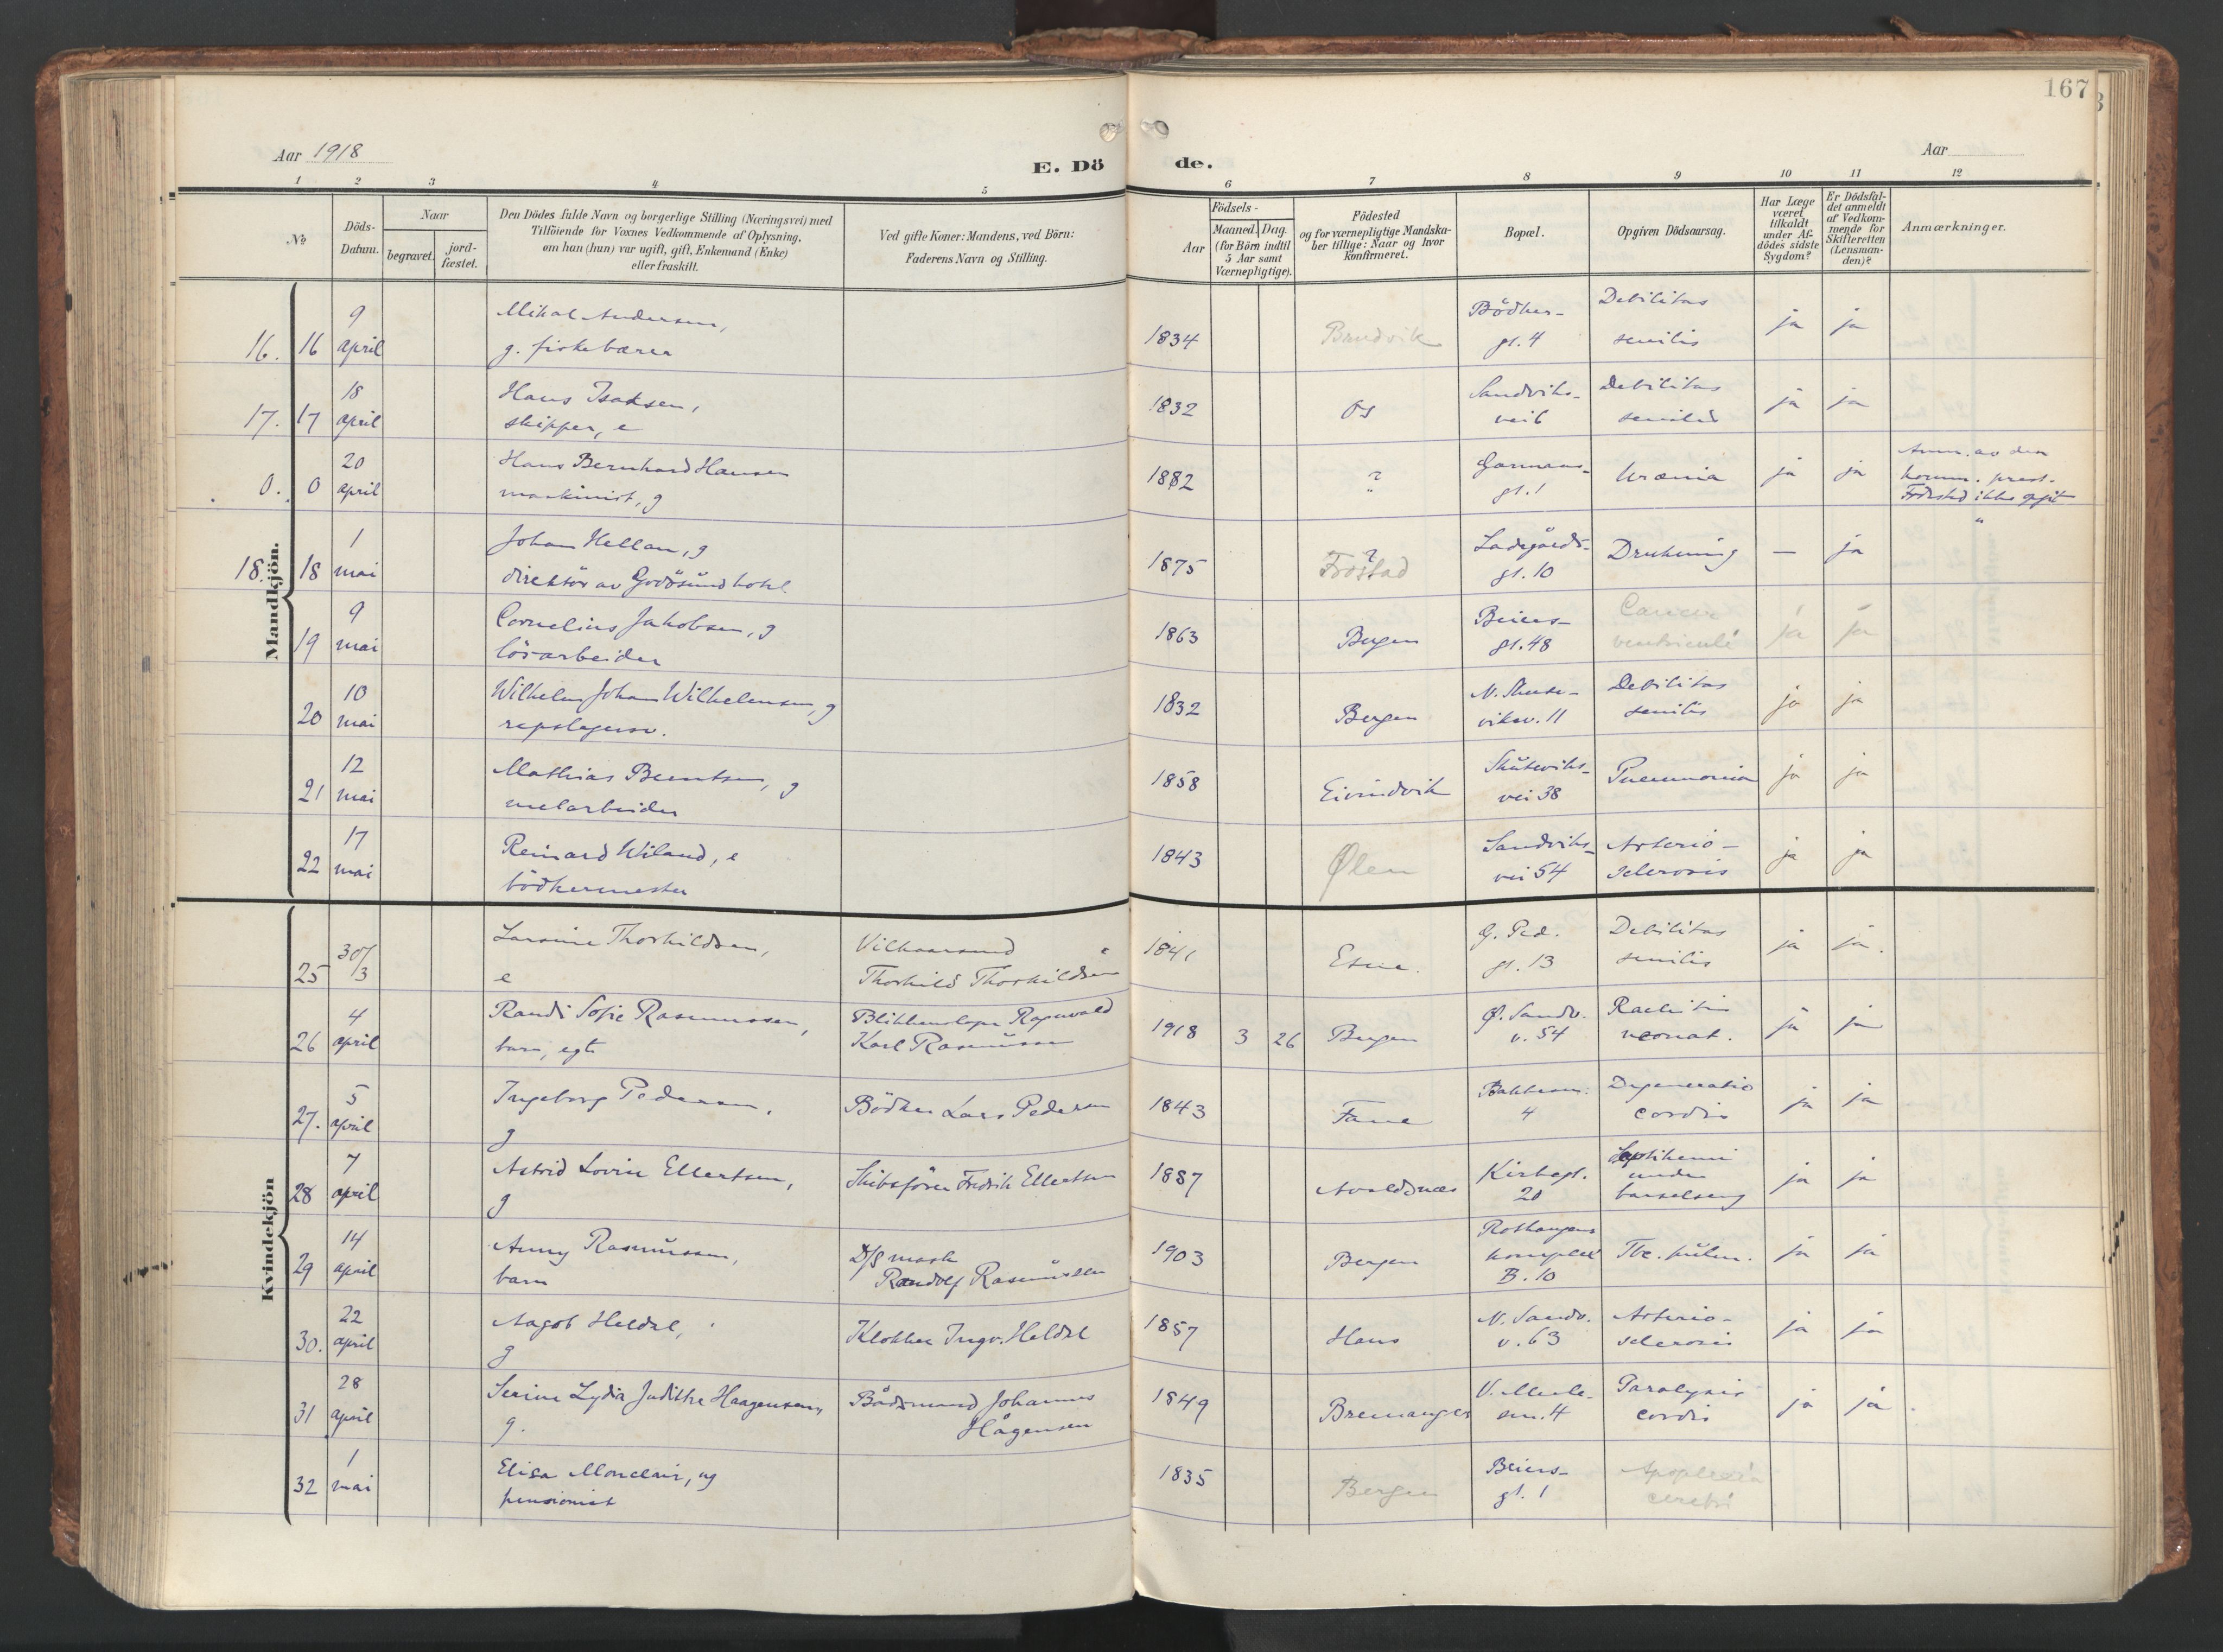 167
Aar 1918
E. Dö
de.
Aar
1 2 3 4 5 6 7 8 9 10 11 12
No
Döds-Datum.
Naar
begravet.
jord-fæstet.
Den Dödes fulde Navn og borgerlige Stilling (Næringsvei) med
Tilföiende for Voxnes Vedkommende af Oplysning,
om han (hun) var ugift, gift, Enkemand (Enke)
eller fraskilt.
Ved gifte Koner: Mandens, ved Börn:
Faderens Navn og Stilling.
Födsels-
Aar
Maaned. Dag.
(for Börn indtil
5 Aar samt
Værnepligtige).
Födested
og for værnepligtige Mandska-
ber tillige: Naar og hvor
konfirmeret.
Bopæl.
Opgiven Dödsaarsag.
Har Læge
været
tilkaldt
under Af-
dödes sidste
Sygdom?
Er Dödsfal-
det anmeldt
af Vedkom-
mende for
Skifteretten
(Lensman-
den)?
Anmærkninger.
Mandkjön.
16. 16 9 april Mikal Andersen, 1834 Brudvik Bödker- Debilitas ja ja
g. fiskebærer gt. 4 senilis
17. 17 18 april Hans Isaksen, 1832 Os Sandviks- Debilitas ja ja
skipper, e vei 6 senilis
0. 0 20 april Hans Bernhard Hansen 1882 ? Garmans- Uræmia ja ja Anm. av den
maskinist, g gt. 1 komm. prest.
Födested ikke opgit
18. 18 1 mai Johan Hellan, g 1875 ? Ladegårds- Drukning — ja "
direktör av Godösund hotel Frostad gt. 10
19 9 mai Cornelius Jakobsen, g 1863 Bergen Beiers- Cancer ja ja
lösarbeider gt. 48 ventriculi
20 10 mai Wilhelm Johan Wilhelmsen, g 1832 Bergen N. Skute- Debilitas ja ja
repslagersv. viksv. 11 senilis
21 12 mai Mathias Berntsen, g 1858 Eivindvik Skuteviks- Pneumonia ja ja
melarbeider vei 38
22 17 mai Reinard Wiland, e 1843 Ølen Sandviks- Arterio- ja ja
bödkermester vei 54 sclerosis
Kvindekjön
25 30/3 Lavine Thorkildsen, 1841 Etne. G. Ped. Debilitas ja ja.
e Thorkild Thorkildsen gt. 13 senilis
26 4 april Randi Sofie Rasmussen, Blikkenslager Ragnvald 1918 3 26 Bergen Ø. Sandv. ja ja
barn, egte Karl Rasmussen v. 54 neonat.
27. 5 april Ingeborg Pedersen, Bödker Lars Pedersen 1843 Fane Bakkesm. Degeneratio ja ja
g 4 cordis
28 7 april Astrid Lovise Ellertsen, Skibsförer Fredrik Ellertsen 1887 Avaldsnes Kirkegt. Septikemi ja ja
g 20 under
barselseng
29 14 april Anny Rasmussen, D/S mask 1903 Bergen Rothaugens Tbc. pulm. ja ja
barn Randolf Rasmussen komplex
B. 10
30. 22 april Aagot Heldal, Klokker Ingv. Heldal 1857 Haus N. Sandv. Arterio- ja ja
g v. 63 sclerosis
31 28 april Serine Lydia Judithe Haagensen, Bådsmand Johannes 1849 Bremanger V. Murle- Paralysis ja ja.
g. Hågensen sm. 4 cordis
32 1 mai Elisa Monclair, ug 1835 Bergen Beiers- Apoplexia
pensionist gt. 1 cerebri